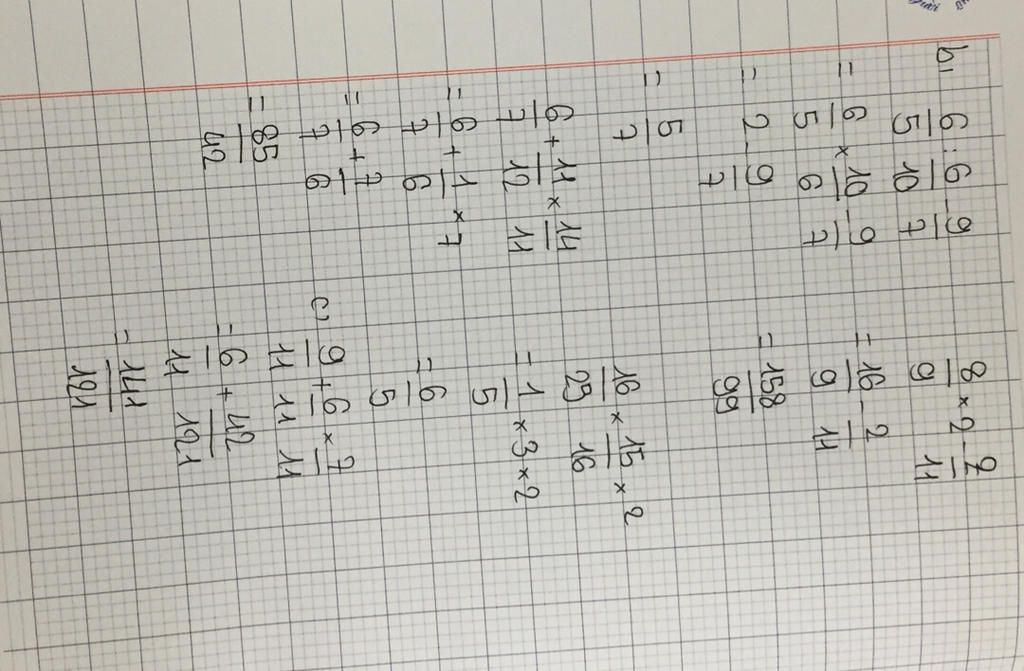 b) 6/5 : 6/10 - 9/7
= 6/5 × 10/6 - 9/7
= 2 - 9/7
= 5/7
6/7 + 11/12 × 14/11
= 6/7 + 1/6 × 7
= 6/7 + 7/6
= 85/42
8/9 × 2 - 2/11
= 16/9 - 2/11
= 158/99
16/25 × 15/16 × 2
= 1/5 × 3 × 2
= 6/5
c) 9/11 + 6/11 × 7/11
= 6/11 + 42/121
= 141/121